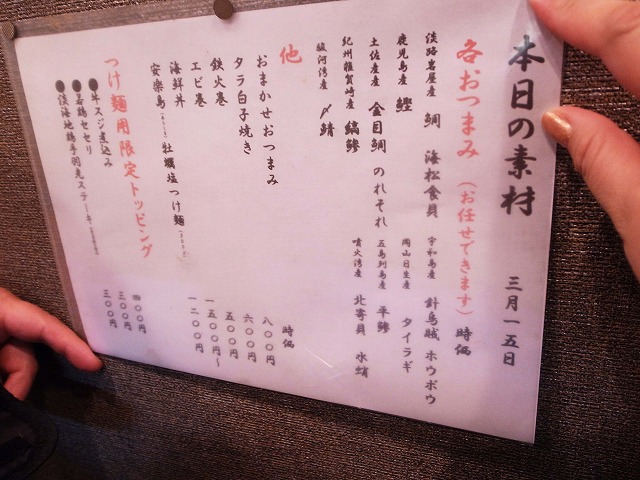 本日の素材 三月一五日
各おつまみ (お任せできます) 時価
淡路岩屋産 鯛 海松食貝 宇和島産 針烏賊 ホウボウ
鹿児島産 鰹 岡山日生産 タイラギ
土佐産 金目鯛 のれそれ 五島列島産 平鯵
紀州雑賀崎産 縞鯵 噴火湾産 北寄貝 水蛸
駿河湾産 〆鯖
他 時価
おまかせおつまみ 八〇〇円
タラ白子焼き 六〇〇円
鉄火巻 五〇〇円
エビ巻 一五〇〇円~
海鮮丼 一二〇〇円
安楽島 牡蠣塩つけ麺
つけ麺用限定トッピング
●牛スジ煮込み 四〇〇円
●若鶏セセリ 三〇〇円
●淡海地鶏手羽先ステーキ 三〇〇円